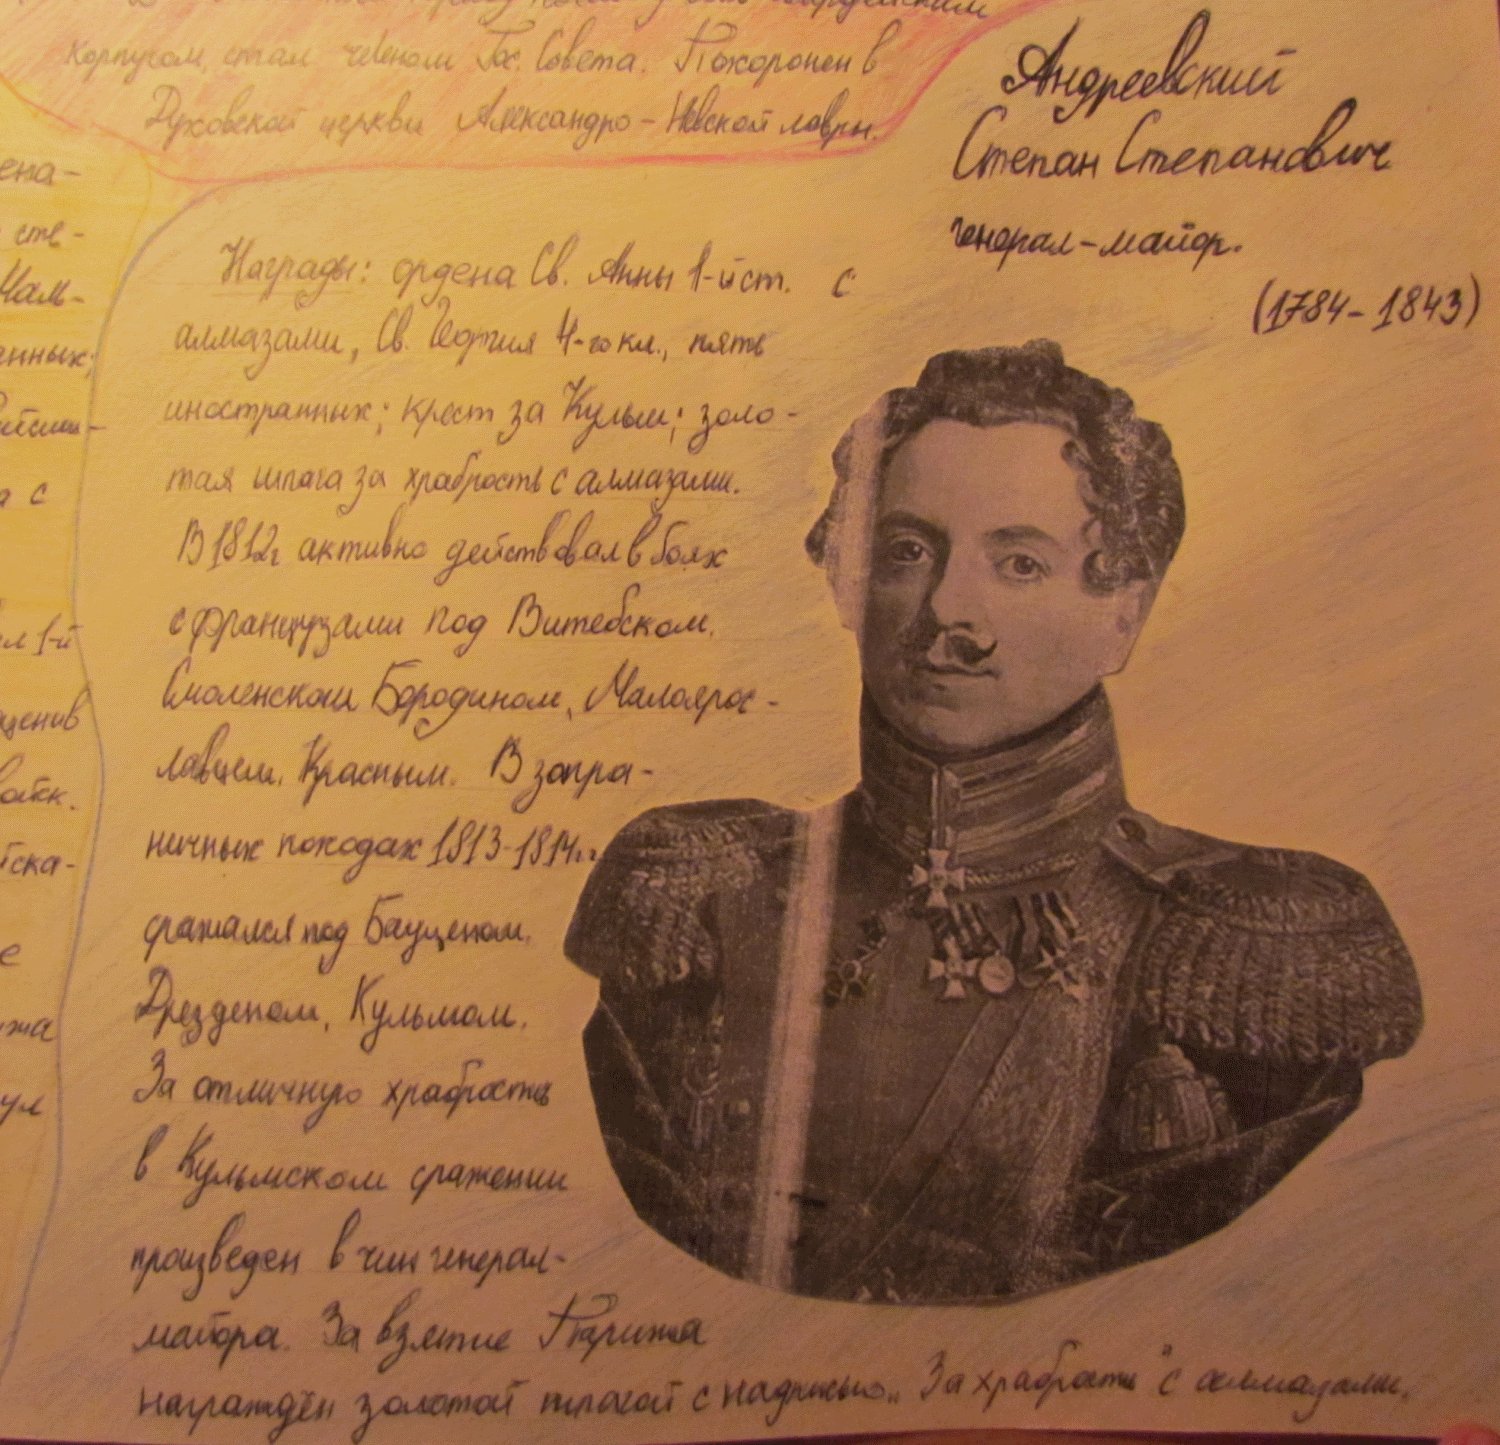 корпусом, стал членом Гос. Совета. Похоронен в
Духовской церкви Александро-Невской лавры.
Андреевский
Степан Степанович
генерал-майор.
(1784-1843)
Награды: ордена Св. Анны 1-й ст. с
алмазами, Св. Георгия 4-го кл., пять
иностранных; крест за Кульм; золо-
тая шпага за храбрость с алмазами.
В 1812г активно действовал в боях
с французами под Витебском,
Смоленском Бородином, Малоярос-
лавцем, Красным. В загра-
ничных походах 1813-1814гг
сражался под Бауценом,
Дрезденом, Кульмом.
За отличную храбрость
в Кульмском сражении
произведен в чин генерал-
майора. За взятие Парижа
награждён золотой шпагой с надписью „За храбрость" с алмазами.
ена-
сте-
анных;
а с
1-й
ска-